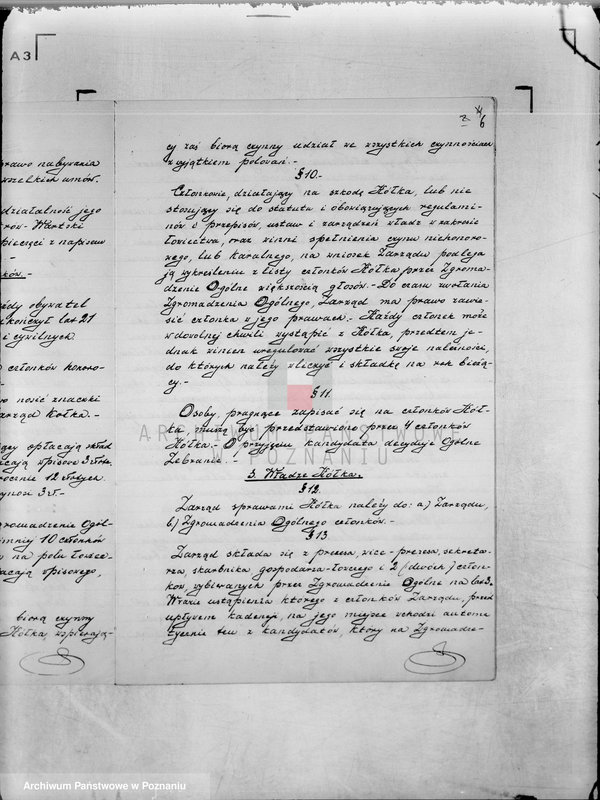 A3
rawo nabywania
wszelkich umów.
działalność jego
rów-Wartski
pieczęci z napisem
ków.-
żdy obywatel
kończył lat 21
i cywilnych.
członków honoro-
nosić znaczki
arząd Kółka.-
cy opłacają
cają wpisowe 3 złote.
rocznie 12 złotych
3 zł.-
gromadzenie Ogól-
mniej 10 członków
na polu łowiec-
acają wpisowego,
biorą czynny
Kółka, wspierają-
6
cy zaś biorą czynny udział we wszystkich czynnościach
z wyjątkiem polowań.-
§ 10.-
Członkowie, działający na szkodę Kółka, lub nie
stosujący się do statutu i obowiązujących regulami-
nów i przepisów, ustaw i zarządzeń władz w zakresie
łowiectwa, oraz winni spełnienia czynu niehonoro-
wego, lub karalnego, na wniosek Zarządu podlega
ją wykreśleniu z listy członków Kółka przez Zgroma-
dzenie Ogólne większością głosów.- Do czasu zwołania
Zgromadzenia Ogólnego, Zarząd ma prawo zawie-
sić członka w jego prawach.- Każdy członek może
w dowolnej chwili wystąpić z Kółka, przedtem je-
dnak winien uregulować wszystkie swoje należności,
do których należy wliczyć i składkę na rok bieżą-
cy.-
§ 11.
Osoby, pragnące zapisać się na członków Kół-
ka, muszą być przedstawione przez 4 członków
Kółka.- O przyjęciu kandydata decyduje Ogólne
Zebranie.-
3. Władze Kółka.
§ 12.
Zarząd sprawami Kółka należy do: a) Zarządu,
b) Zgromadzenia Ogólnego członków.-
§ 13
Zarząd składa się z prezesa, vice-prezesa, sekreta-
rza, skarbnika gospodarza-łowczego i 2 (dwóch) człon-
ków, wybieranych przez Zgromadzenie Ogólne na lat 3.
W razie ustąpienia którego z członków Zarządu, przed
upływem kadencji, na jego miejsce wchodzi automa
tycznie ten z kandydatów, który na Zgromadze-
ARCHIWUM PAŃSTWOWE
W POZNANIU
Archiwum Państwowe w Poznaniu